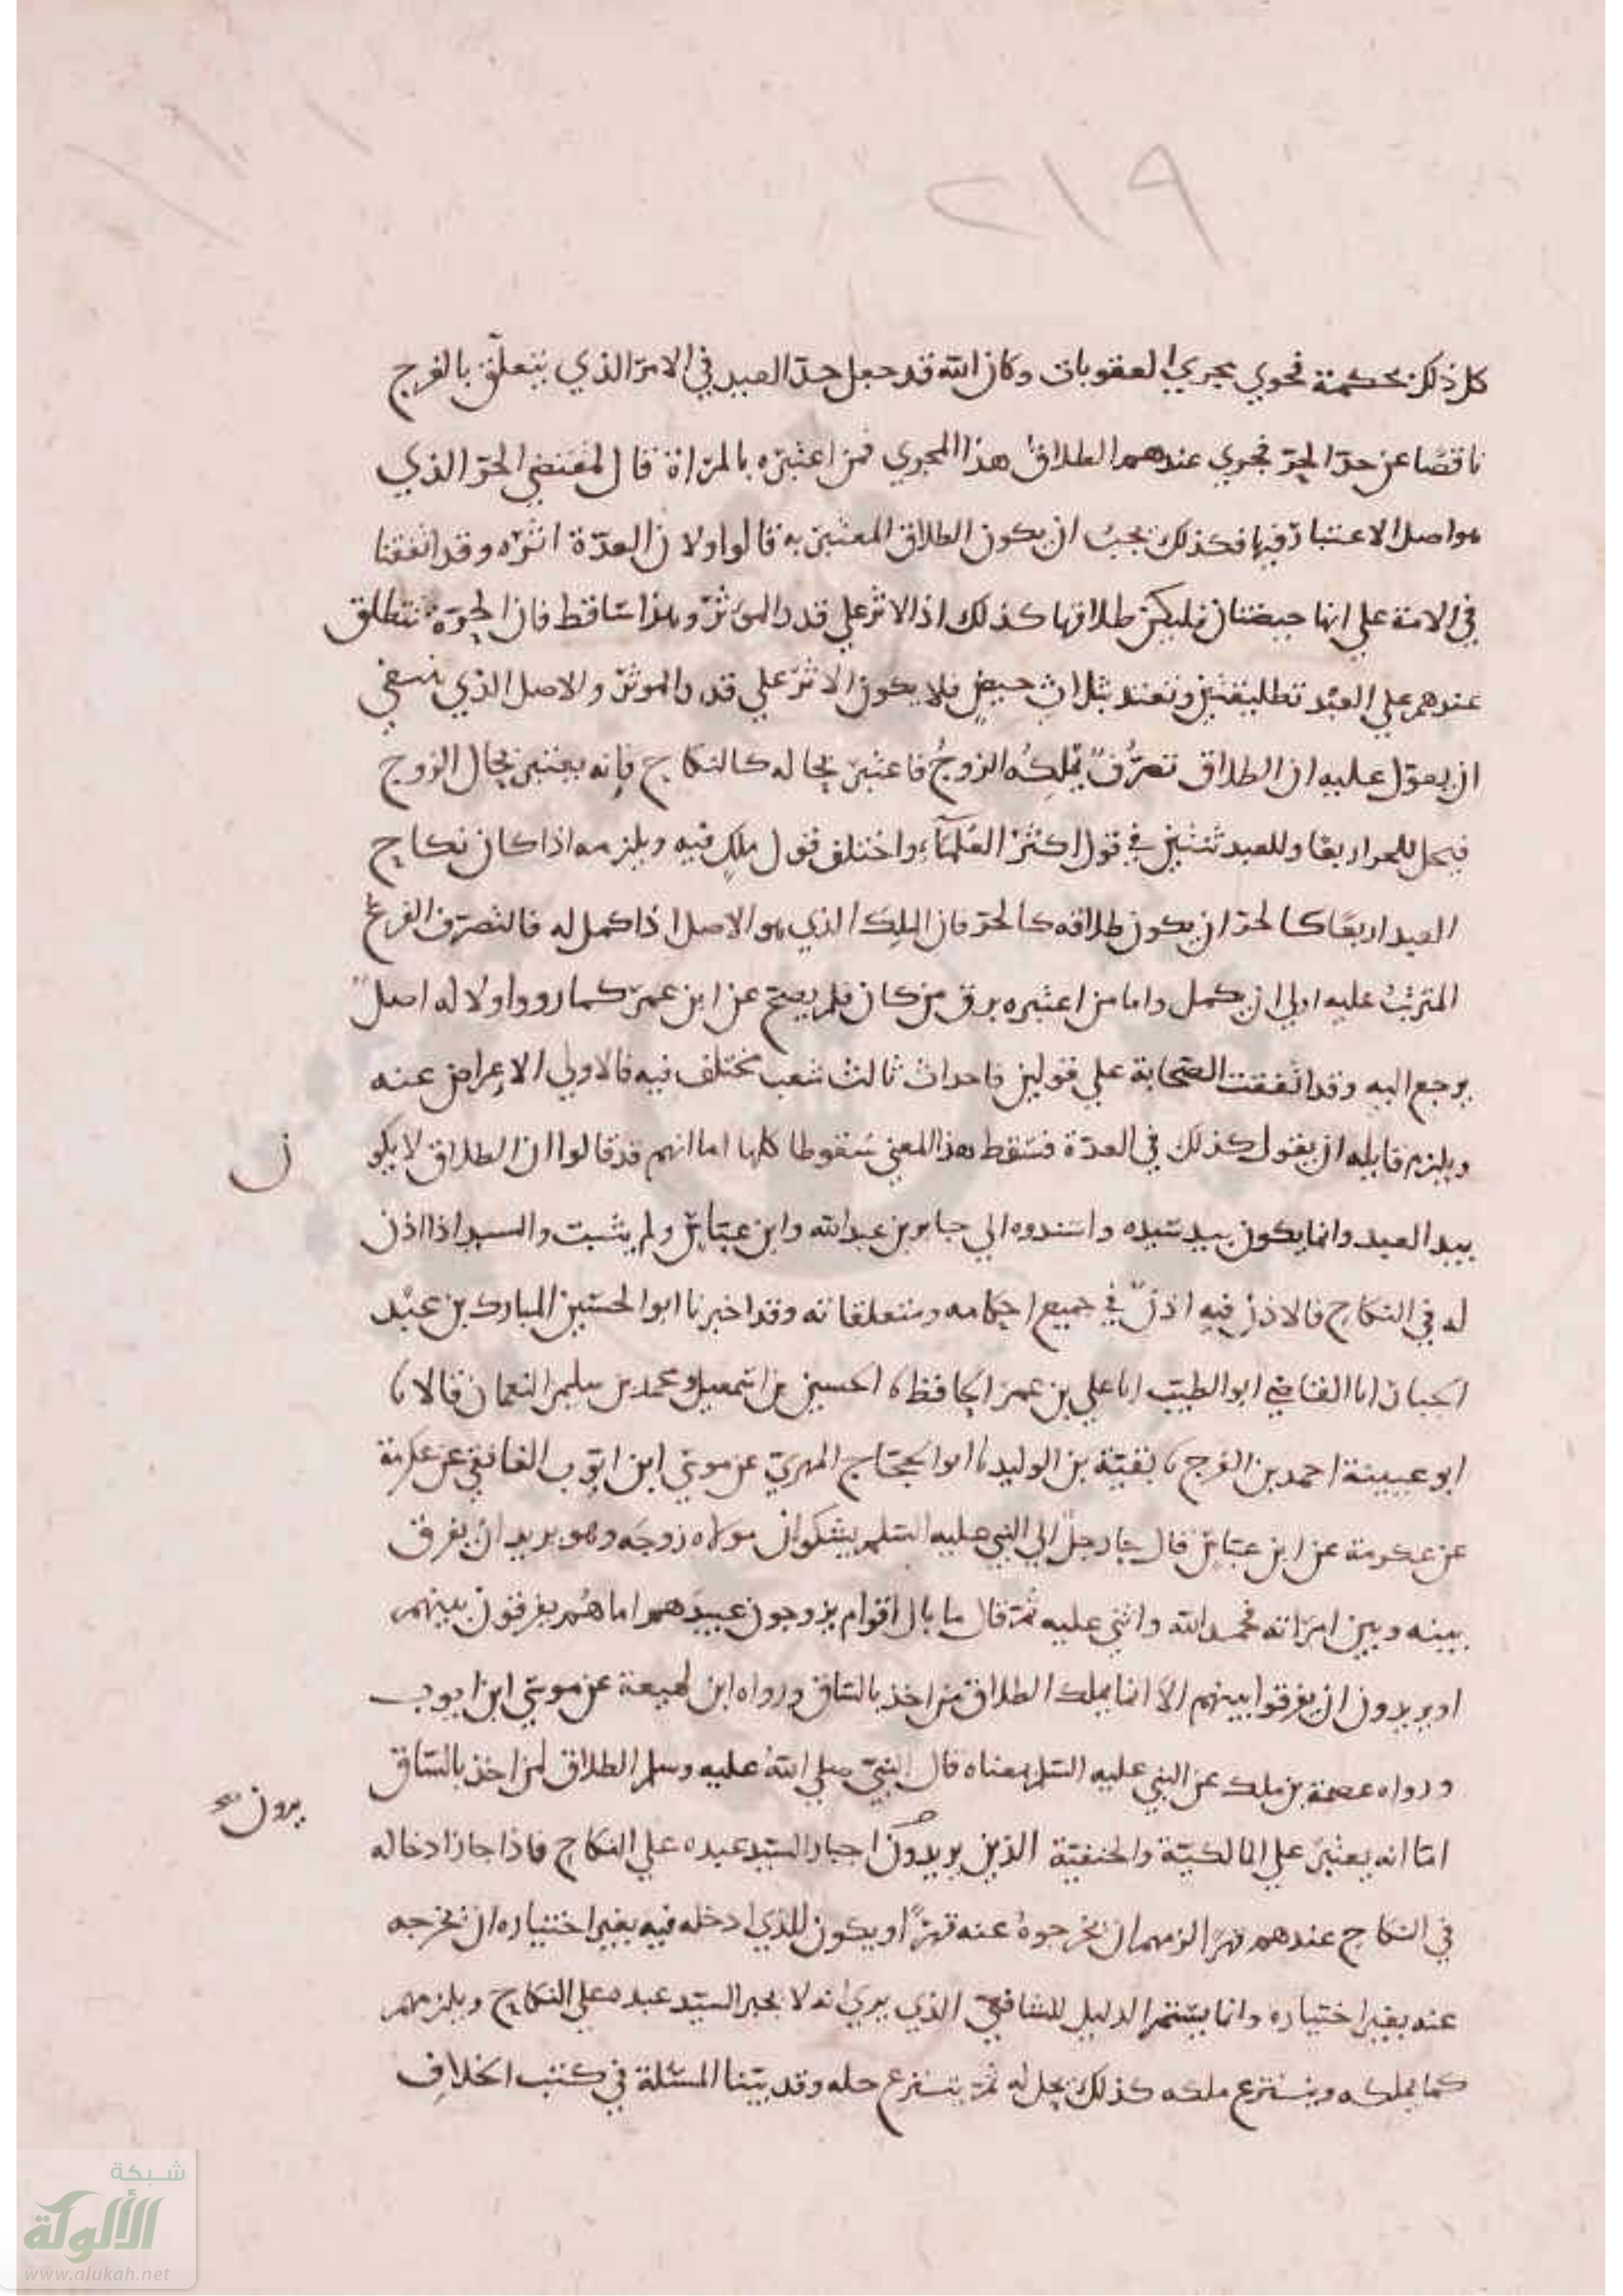 ٢١٩
كل ذلك بحكمة فجري مجري العقوبات وكان الله قد جعل حد العبد في الامر الذي يتعلق بالفرج
ناقصا عن حد الحر فجري عندهم الطلاق هذا المجري فمن اعتبره بالمراة قال لمقتضي الحر الذي
هو اصل الاعتبار فيها فكذلك يجب ان يكون الطلاق المعتبر به قالوا ولان العدة اثره وقد اتفقنا
في الامة علي انها حيضتان فليكن طلاقها كذلك اذ الاثر علي قدر المؤثر وهذا ساقط فان الحرة تتطلق
عندهم علي العبد تطليقتين وتعتد بثلاث حيض فلا يكون الاثر علي قدر الموثر والاصل الذي ينبغي
ان يعول عليه ان الطلاق تصرف يملكه الزوج فاعتبر بحاله كالنكاح فانه يعتبر بحال الزوج
فيحل للحر اربعا وللعبد ثنتين في قول اكثر العلماء واختلف قول ملك فيه ويلزمه اذا كان نكاح
العبد اربعا كالحر ان يكون طلاقه كالحر فان الملك الذي هو الاصل اذا كمل له فالتصرف الفرع
المترتب عليه اولي ان يكمل واما من اعتبره برق من كان فلم يصح عن ابن عمر كما رووا ولا له اصل
يرجع اليه وقد اتفقت الصحابة علي قولين فاحداث ثالث شعب مختلف فيه فالاولي الاعراض عنه
ويلزم قايله ان يقول كذلك في العدة فسقط هذا المعني سقوطا كليا اما انهم قد قالوا ان الطلاق لا يكو
ن
بيد العبد وانما يكون بيد سيده واسندوه الي جابر بن عبد الله وابن عباس ولم يثبت والسيد اذا اذن
له في النكاح فالاذن فيه اذن في جميع احكامه ومتعلقاته وقد اخبرنا ابو الحسين المبارك بن عبد
الجبار انا القاضي ابو الطيب انا علي بن عمر الحافظ نا الحسين بن اسمعيل ومحمد بن سلمر النعمان قالا نا
ابو عيينة احمد بن الفرج نا بقية بن الوليد نا ابو الحجاج المهري عن موسي ابن ايوب الغافقي عن عكرمة
عن عكرمة عن ابن عباس قال جا رجل الي النبي عليه السلم يشكو ان مولاه زوجه وهو يريد ان يفرق
بينه وبين امراته فحمد الله واثني عليه ثم قال ما بال اقوام يزوجون عبيدهم اماهم يفرقون بينهم
او يريدون ان يفرقوا بينهم الا انما يملك الطلاق من اخذ بالساق ورواه ابن لهيعة عن موسي ابن ايوب
ورواه عصمة بن ملك عن النبي عليه السلم بمعناه قال النبي صلي الله عليه وسلم الطلاق لمن اخذ بالساق
يرون صح
اما انه يعتبر علي المالكية والحنفية الذين يريدون اجبار السيد عبده علي النكاح فاذا جاز ادخاله
في النكاح عندهم قهرا لزمهم ان يخرجوه عنه قهرا او يكون للذي ادخله فيه بغير اختياره ان يخرجه
عنه بغير اختياره وانما يستمر الدليل للشافعي الذي يري انه لا يجبر السيد عبده علي النكاح ويلزمهم
كما يملكه وينتزع ملكه كذلك يحل له ثم ينتزع حله وقد بينا المسئلة في كتب الخلاف
شبكة
الألوكة
www.alukah.net